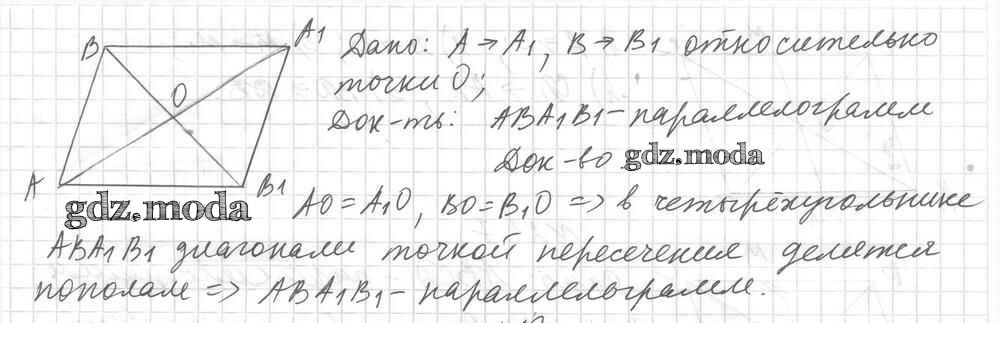 B A1
Дано: A → A1, B → B1 относительно
точки O;
O
Док-ть: ABA1B1 - параллелограмм
Док-во gdz.moda
A B1
gdz.moda
AO = A1O, BO = B1O => в четырёхугольнике
ABA1B1 диагонали точкой пересечения делятся
пополам => ABA1B1 - параллелограмм.